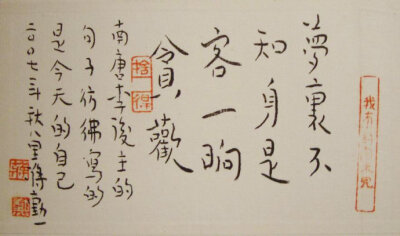 夢裏不
知身是
客一晌
貪歡
南唐李後主的
句子彷彿寫的
是今天的自己
二〇〇七年秋八里蔣勳
捨得